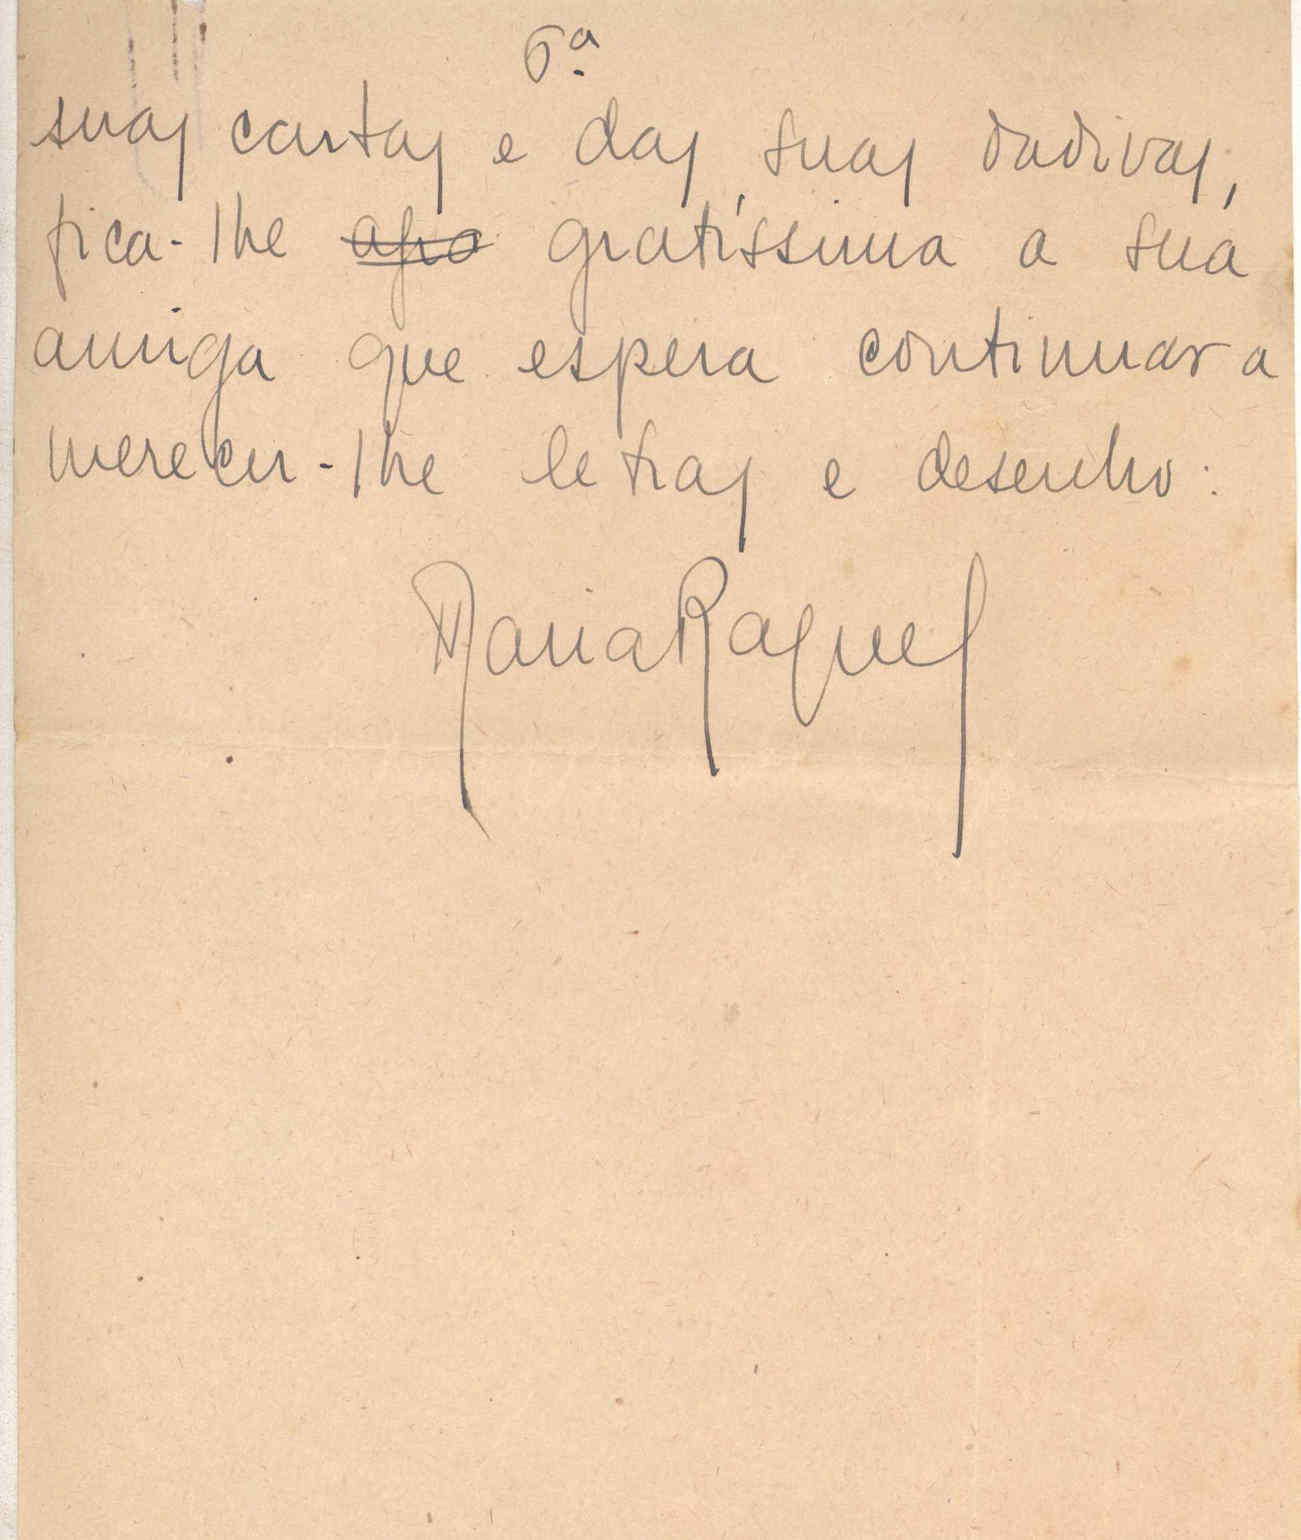 6ª
suas cartas e das suas dadivas,
fica-lhe agra gratíssima a sua
amiga que espera continuar a
merecer-lhe letras e desenho:
Maria Raquel